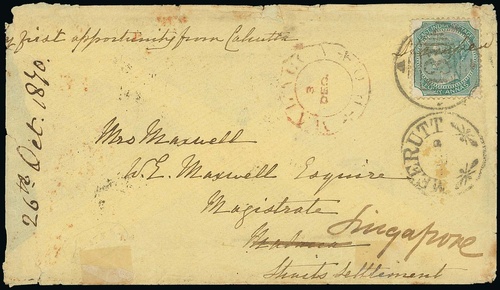 y first opportunity from Calcutta
26th Oct. 1870.
3
DEC
MEERUTT
Mrs Maxwell
W. E. Maxwell Esquire
Magistrate
Malacca
Singapore
Straits Settlement